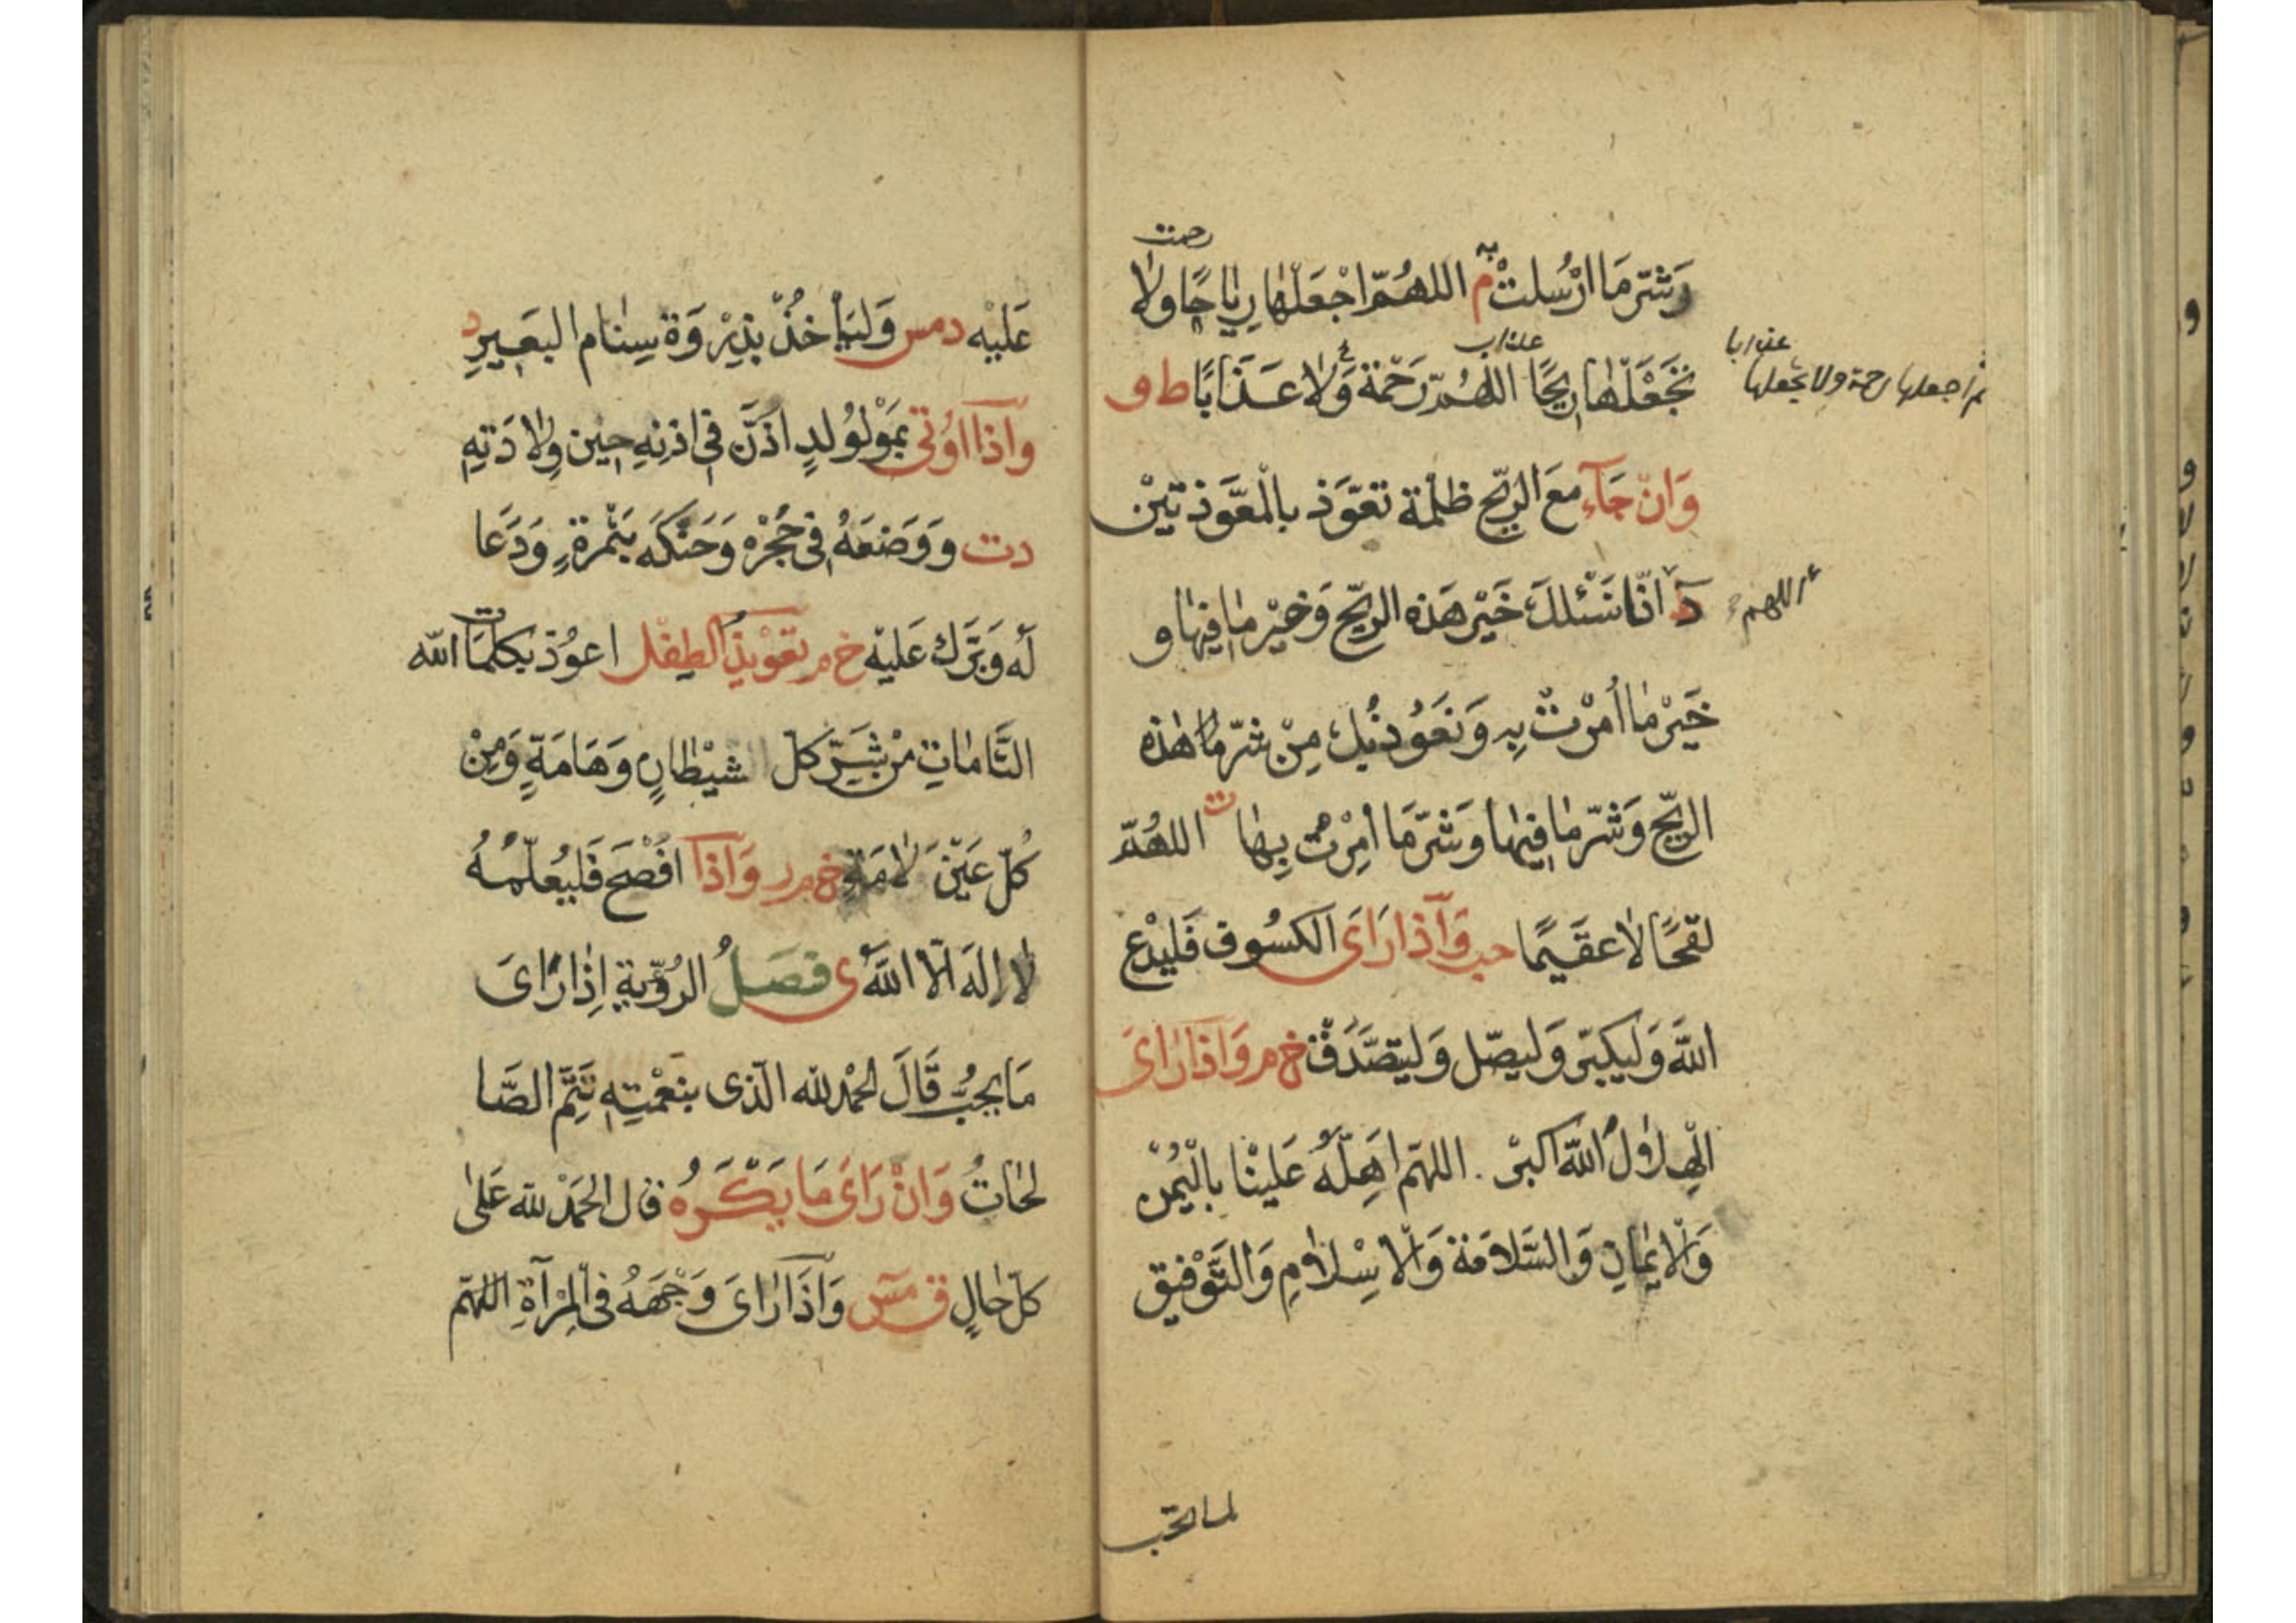 رحمت
وَشَرّ مَا ارْسُلتْ به م اللهُمّ اجْعَلْهَا رِيَاحًا ولا
تَجْعَلْهَا رِيحًا اللهُمّ رَحْمَة وَلا عَذَابًا ط و
عذاب
عذابا
ثم اجعلها رحمة ولا تجعلها
وَانْ جَآء مَعَ الرّيْح ظلْمة تعَوّذ بالْمعَّوذتيْن
د انّا نَسْئلكَ خَيْر هَذه الرّيْح وَخيْر مَا فِيهَا و
اللهم
خَيْر مَا أُمرْتْ بِه وَنَعُوذ بُك مِنْ شرّ هٰذه
الرّيْح وَشَرّ مَا فِيهَا وَشَرّ مَا أمِرْت بِهَا ت اللهُمّ
لقحًا لا عقَيمًا حب وَآذا رَاىَ الكسُوف فَليدْع
اللهَ وَليكبّر وَليصّل وَليتصّدَقْ خ م وَاذَا رَاىَ
الْهِلاولُ اللهُ اكبرْ . اللهّم اهِلّهُ عَليْنا بالْيُمْن
وَالْايْمَانِ وَالسّلامَة وَالْاسْلامِ وَالتَّوْفيِق
لما تحب
عَليْه دمس وَليَأخُذْ بذِرْوَة سِنَام البعَيرِ د
وَآذا اوُتى بَموْلُولدٍ اذَّنَ فِى اذنهِ حِين وِلادَتهِ
دت وَوَضعَهُ فِى حُجْرْه وَحَنّكَه بَتْمرة وَدَعَا
لَه وَبَرّك عَليْه خ م تعْويْذ الطفْل اعوُذ بكلمَات الله
التَّامَاتِ منْ شَرّ كلّ شيْطَانٍ وَهَامَةٍ وَمِنْ
كُلّ عَيْنَ لامَة خ م ر وَآذا افْصَح فَليُعلّمْهُ
لا اِلهَ الّا اللهُ ى فصَلُ الرُؤّيةِ اِذَا رَاىَ
مَا يحِبُّ قَالَ الحَمْد لله الّذى بنعْمتِهِ تَتِمّ الصَّا
لحَاتُ وَانْ رَاىَ مَا يَكْرَهُ قال الحَمْد لله عَلىٰ
كلّ حَالٍ ق مس وَآذَا رَاىَ وَجْهَهُ فى الْمِرْآةِ اللهّم